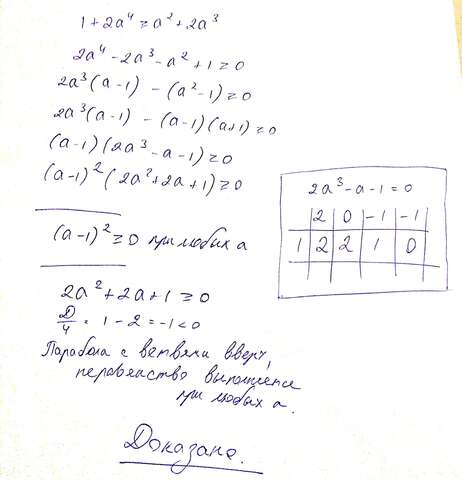 1 + 2a⁴ ≥ a² + 2a³
2a⁴ - 2a³ - a² + 1 ≥ 0
2a³(a-1) - (a²-1) ≥ 0
2a³(a-1) - (a-1)(a+1) ≥ 0
(a-1)(2a³ - a - 1) ≥ 0
(a-1)²(2a² + 2a + 1) ≥ 0
2a³ - a - 1 = 0
2 0 -1 -1
1 2 2 1 0
(a-1)² ≥ 0 при любых a
2a² + 2a + 1 ≥ 0
D/4 = 1 - 2 = -1 < 0
Парабола с ветвями вверх,
неравенство выполняется
при любых a.
Доказано.